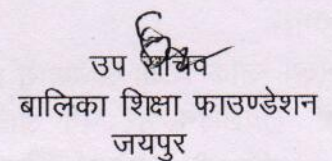 उप सचिव
बालिका शिक्षा फाउण्डेशन
जयपुर